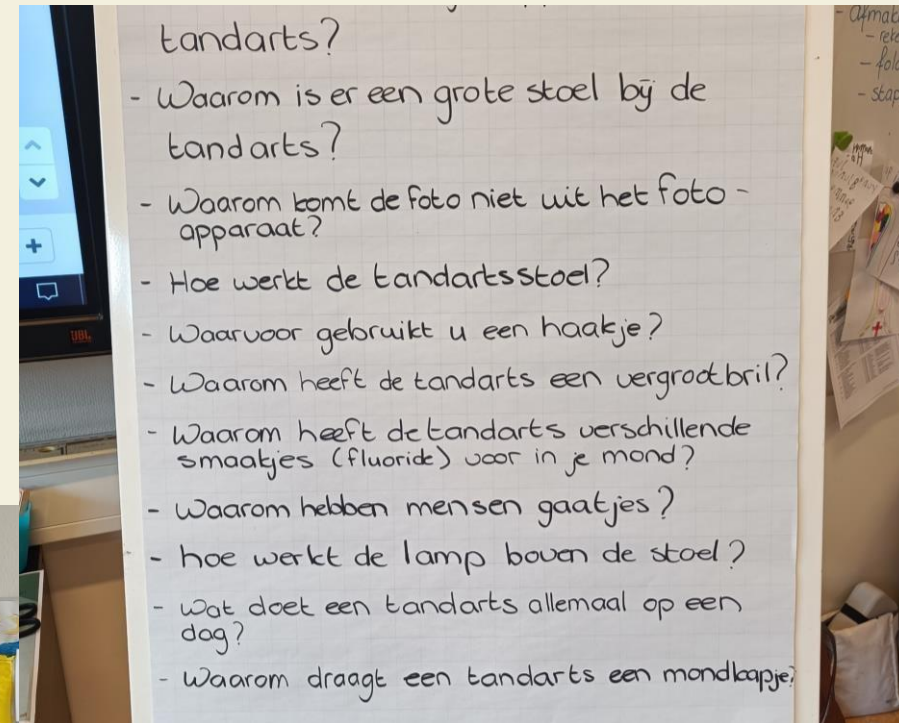 tandarts?
- Waarom is er een grote stoel bij de
tandarts?
- Waarom komt de foto niet uit het foto-
apparaat?
- Hoe werkt de tandartsstoel?
- Waarvoor gebruikt u een haakje?
- Waarom heeft de tandarts een vergrootbril?
- Waarom heeft de tandarts verschillende
smaakjes (fluoride) voor in je mond?
- Waarom hebben mensen gaatjes?
- hoe werkt de lamp boven de stoel?
- Wat doet een tandarts allemaal op een
dag?
- Waarom draagt een tandarts een mondkapje?
JBL